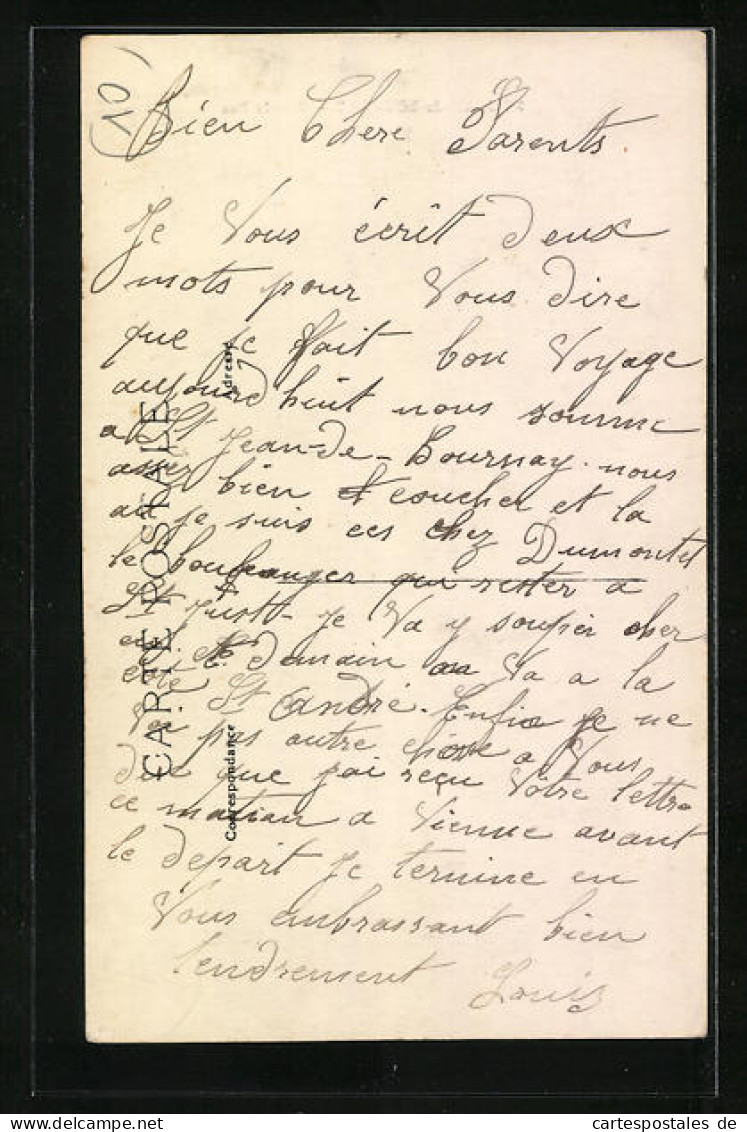 (10)
Bien Chere Parents
Je Vous écrit deux
mots pour Vous dire
que je fait bon Voyage
aujourd huit nous somme
a St Jean-de-Bournay. nous
assez bien coucher et la
au je suis ces chez Dumontel
le boulanger qui rester a
St Just- je Va y souper cher
Demain on Va a la
coté St André. Enfin je ne
Voi pas autre chose a Vous
dire que j'ai reçu Votre lettre
ce matian a Vienne avant
le depart je termine en
Vous embrassant bien
tendrement Louis
CARTE POSTALE
Correspondance
Adresse
cartespostales de